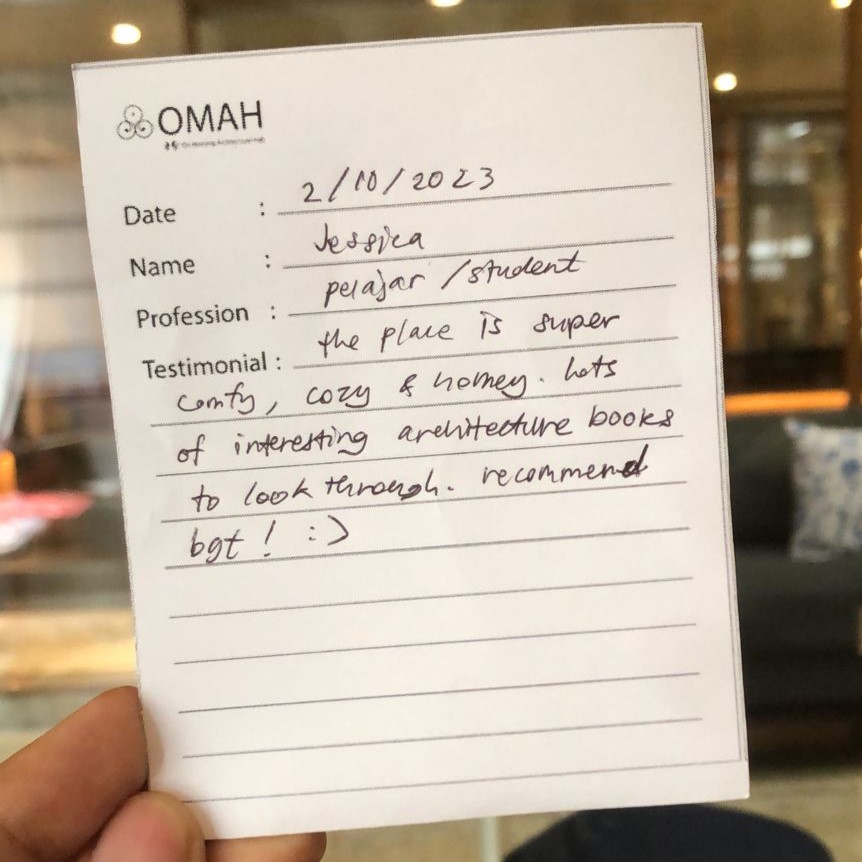 OMAH
Date : 2/10/2023
Name : Jessica
Profession : pelajar /student
Testimonial : the place is super
comfy, cozy & homey. Lots
of interesting architecture books
to look through. recommend
bgt ! :)